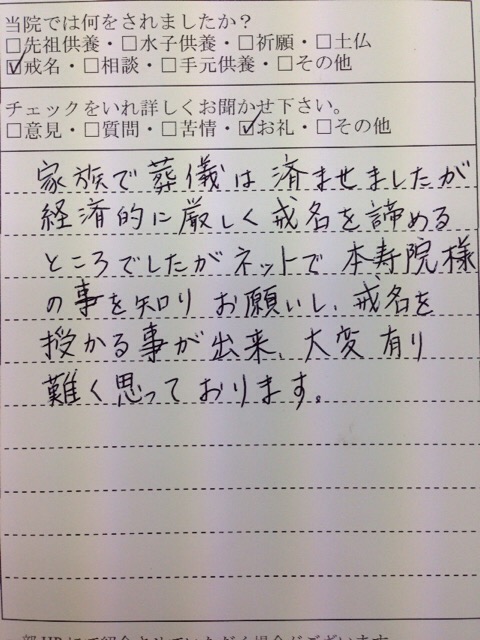 当院では何をされましたか？
□先祖供養・□水子供養・□祈願・□土仏
☑戒名・□相談・□手元供養・□その他
チェックをいれ詳しくお聞かせ下さい。
□意見・□質問・□苦情・☑お礼・□その他
家族で葬儀は済ませましたが
経済的に厳しく戒名を諦める
ところでしたがネットで本寿院様
の事を知りお願いし、戒名を
授かる事が出来、大変有り
難く思っております。